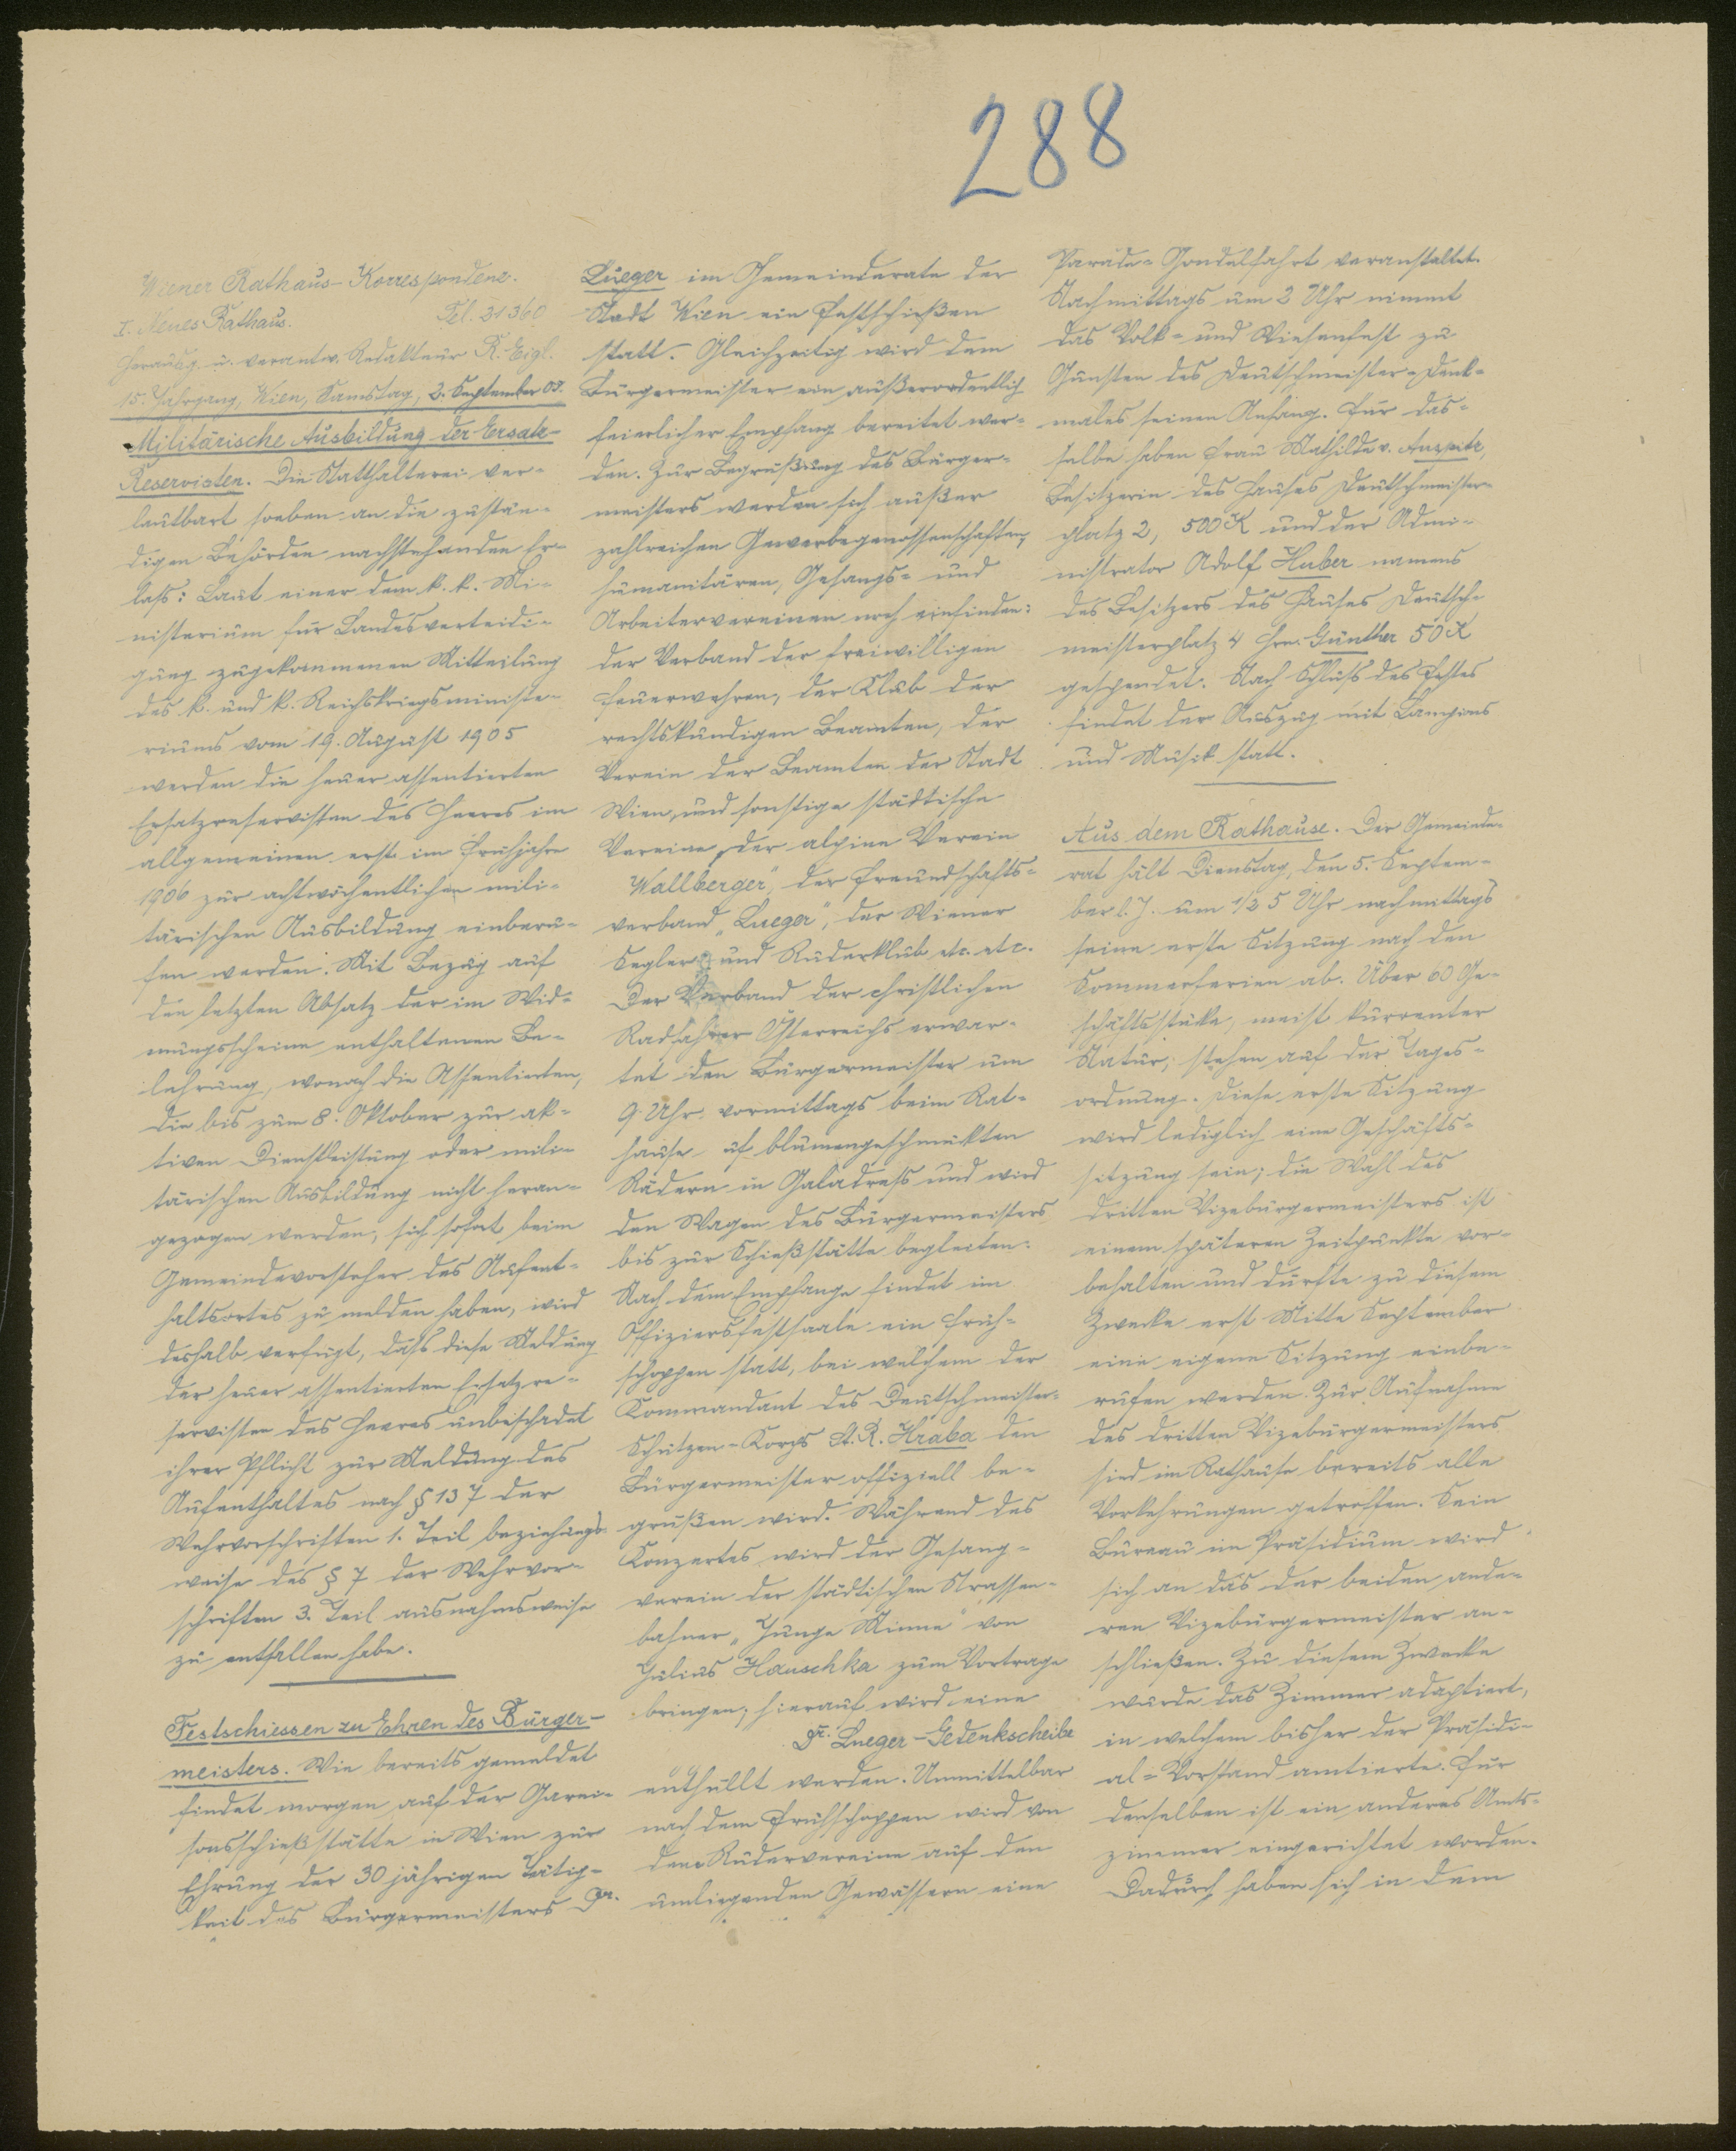 288
Wiener Rathaus-Korrespondenz.
I. Neues Rathaus. Tel. 31360
Herausg. u. verantw. Redakteur R. Eigl.
15. Jahrgang, Wien, Samstag, 2. September 05.
Militärische Ausbildung der Ersatz-
Reservisten. Die Statthalterei ver-
lautbart soeben an die zustän-
digen Behörden nachstehenden Er-
laß: Laut einer dem k. k. Mi-
nisterium für Landesverteidi-
gung zugekommenen Mitteilung
des k. und k. Reichskriegsministe-
riums vom 19. August 1905
werden die heuer assentierten
Ersatzreservisten des Heeres im
allgemeinen erst im Frühjahre
1906 zur achtwöchentlichen mili-
tärischen Ausbildung einberu-
fen werden. Mit Bezug auf
den letzten Absatz der im Wid-
mungsscheine enthaltenen Be-
lehrung, wonach die Assentierten,
die bis zum 8. Oktober zur ak-
tiven Dienstleistung oder mili-
tärischen Ausbildung nicht heran-
gezogen werden, sich sofort beim
Gemeindevorsteher des Aufent-
haltsortes zu melden haben, wird
deshalb verfügt, daß diese Meldung
der heuer assentierten Ersatzre-
servisten des Heeres unbeschadet
ihrer Pflicht zur Meldung des
Aufenthaltes nach § 137 der
Wehrvorschriften 1. Teil beziehungs-
weise des § 7 der Wehrvor-
schriften 3. Teil ausnahmsweise
zu entfallen habe.
Festschiessen zu Ehren des Bürger-
meisters. Wie bereits gemeldet
findet morgen auf der Garni-
sonsschießstätte in Wien zur
Ehrung der 30 jährigen Tätig-
keit des Bürgermeisters Dr.
Lueger im Gemeinderate der
Stadt Wien ein Festschießen
statt. Gleichzeitig wird dem
Bürgermeister ein außerordentlich
feierlicher Empfang bereitet wer-
den. Zur Begrüßung des Bürger-
meisters werden sich außer
zahlreichen Gewerbegenossenschaften,
humanitären, Gesangs- und
Arbeitervereinen noch einfinden:
der Verband der freiwilligen
Feuerwehren, der Klub der
rechtskundigen Beamten, der
Verein der Beamten der Stadt
Wien und sonstige städtische
Vereine, der alpine Verein
"Wallberger", der Freundschafts-
verband "Lueger", der Wiener
Kegler- und Ruderklub etc. etc.
Der Verband der christlichen
Radfahrer Österreichs erwar-
tet den Bürgermeister um
9 Uhr vormittags beim Rat-
hause auf blumengeschmückten
Rädern in Galadreß und wird
den Wagen des Bürgermeisters
bis zur Schießstätte begleiten.
Nach dem Empfange findet im
Offiziersfestsaale ein Früh-
schoppen statt, bei welchem der
Kommandant des Deutschmeister-
Schützen-Korps St. R. Hraba den
Bürgermeister offiziell be-
grüßen wird. Während des
Konzertes wird der Gesang-
verein der städtischen Strassen-
bahner "Junge Minne" von
Julius Hauschka zum Vortrage
bringen; hierauf wird eine
Dr. Lueger-Gedenkscheibe
enthüllt werden. Unmittelbar
nach dem Frühschoppen wird von
dem Rudervereine auf den
umliegenden Gewässern eine
Parade-Gondelfahrt veranstaltet.
Nachmittags um 2 Uhr nimmt
das Volk- und Wiesenfest zu
Gunsten des Deutschmeister-Denk-
males seinen Anfang. Für das-
selbe haben Frau Mathilde v. Auspitz,
Besitzerin des Hauses Deutschmeister-
platz 2, 500 K und der Admi-
nistrator Adolf Huber namens
des Besitzers des Hauses Deutsch-
meisterplatz 4 Hrn. Günther 50 K
gespendet. Nach Schluß des Festes
findet der Auszug mit Lampions
und Musik statt.
Aus dem Rathause. Der Gemeinde-
rat hält Dienstag, den 5. Septem-
ber l. J. um 1/2 5 Uhr nachmittags
seine erste Sitzung nach den
Sommerferien ab. Über 60 Ge-
schäftsstücke, meist kurrenter
Natur, stehen auf der Tages-
ordnung. Diese erste Sitzung
wird lediglich eine Geschäfts-
sitzung sein; die Wahl des
dritten Vizebürgermeisters ist
einem späteren Zeitpunkte vor-
behalten und dürfte zu diesem
Zwecke erst Mitte September
eine eigene Sitzung einbe-
rufen werden. Zur Aufnahme
des dritten Vizebürgermeisters
sind im Rathause bereits alle
Vorkehrungen getroffen. Sein
Bureau im Präsidium wird
sich an das der beiden ande-
ren Vizebürgermeister an-
schließen. Zu diesem Zwecke
wurde das Zimmer adaptiert,
in welchem bisher der Präsidi-
al-Vorstand amtierte. Für
denselben ist ein anderes Amts-
zimmer eingerichtet worden.
Dadurch haben sich in dem